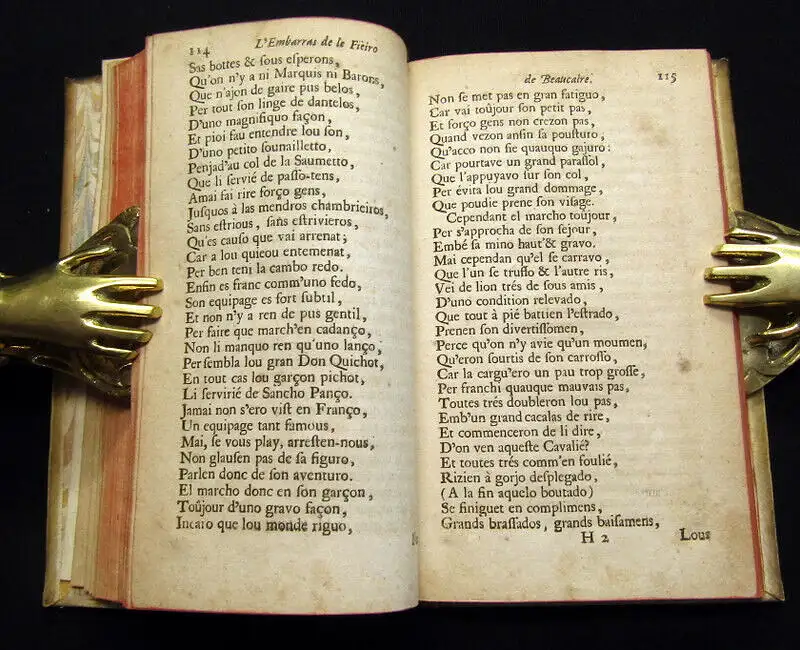 114 L'Embarras de le Fieiro
Sas bottes & ſous eſperons,
Qu'on n'y a ni Marquis ni Barons,
Que n'ajon de gaire pus belos,
Per tout ſon linge de dantelos,
D'uno magnifiquo façon,
Et pioi fau entendre lou ſon,
D'uno petito ſounailletto,
Penjad'au col de la Saumetto,
Que li ſervié de paſſo-tens,
Amai fai rire forço gens,
Juſques à las mendros chambrieiros,
Sans eſtrious, ſans eſtrivieros,
Qu'es cauſo que vai arrenat;
Car a lou quieou entemenat,
Per ben teni la cambo redo.
Enfin es franc comm'uno fedo,
Son equipage es fort ſubtil,
Et non n'y a ren de pus gentil,
Per faire que march'en cadanço,
Non li manquo ren qu'uno lanço,
Per ſembla lou gran Don Quichot,
En tout cas lou garçon pichot,
Li ſervirié de Sancho Panço.
Jamai non s'ero viſt en Franço,
Un equipage tant famous,
Mai, ſe vous play, arreſten-nous,
Non glauſen pas de ſa figuro,
Parlen donc de ſon aventuro.
El marcho donc en ſon garçon,
Toûjour d'uno gravo façon,
Incaro que lou monde riguo,
de Beaucaire. 115
Non ſe met pas en gran fatiguo,
Car vai toûjour ſon petit pas,
Et forço gens non crezon pas,
Quand vezon anſin ſa pouſturo,
Qu'acco non ſie quauquo gajuro:
Car pourtave un grand paraſſol,
Que l'appuyavo ſur ſon col,
Per évita lou grand dommage,
Que poudie prene ſon viſage.
Cependant el marcho toûjour,
Per s'approcha de ſon ſejour,
Embé ſa mino haut'& gravo.
Mai cependan qu'el ſe carravo,
Que l'un ſe truffo & l'autre ris,
Vei de lion trés de ſous amis,
D'uno condition relevado,
Que tout à pié battien l'eſtrado,
Prenen ſon divertiſſomen,
Perce qu'on n'y avie qu'un moumen,
Qu'eron ſourtis de ſon carroſſo,
Car la cargu'ero un pau trop groſſe,
Per franchi quauque mauvais pas,
Toutes trés doubleron lou pas,
Emb'un grand cacalas de rire,
Et commenceron de li dire,
D'on ven aqueſte Cavalié?
Et toutes trés comm'en foulié,
Rizien à gorjo deſplegado,
(A la fin aquelo boutado)
Se finiguet en complimens,
Grands braſſados, grands baiſamens,
H 2 Lous